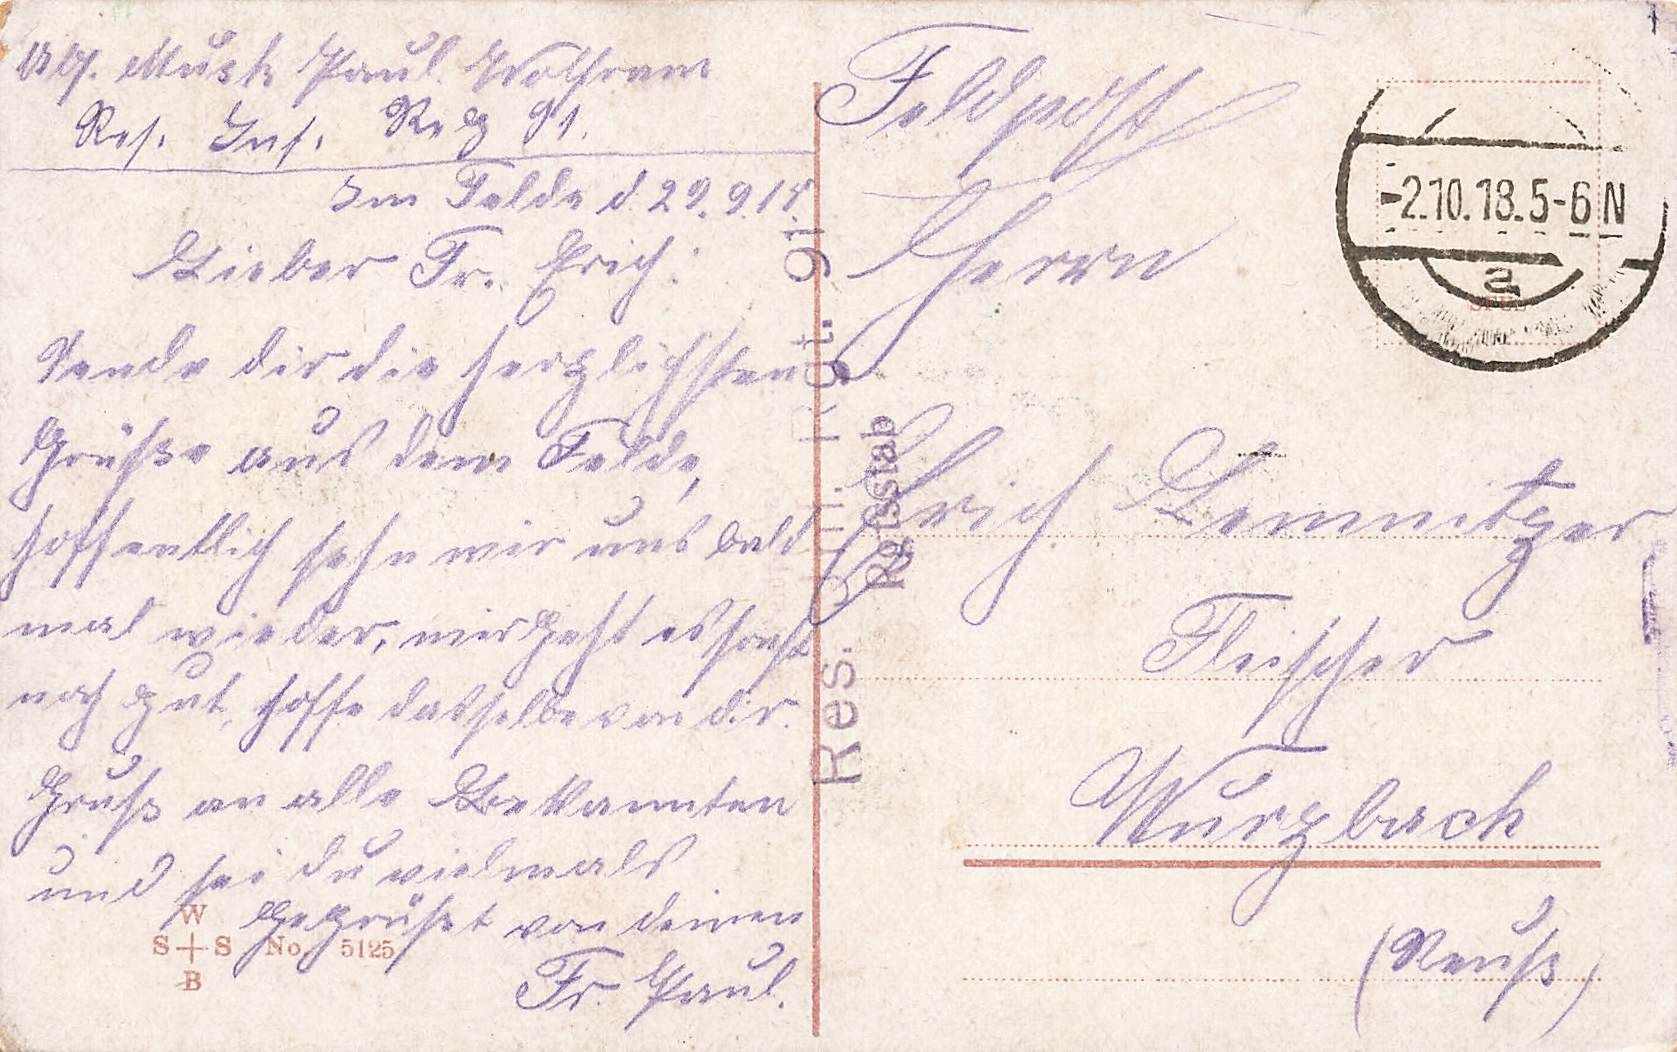 Abs. Musk. Paul. Wolfram
Res. Inf. Reg 91.
Im Felde d. 29.9.18.
Lieber Fr. Erich:
Sende dir die herzlichsten
Grüße aus dem Felde,
hoffentlich sehn wir uns bald
mal wieder, mir geht es sonst
noch gut, hoffe dasselbe von dir.
Gruß an alle Bekannten
und sei du vielmals
Gegrüßt von deinem
Fr. Paul.
W
S+S No. 5125
B
Res. Inf. Rgt. 91.
Rgtsstab
Feldpost
-2.10.18.5-6N
a
Herrn
Erich Lemnitzer
Fleischer
Wurzbach
(Reuß)